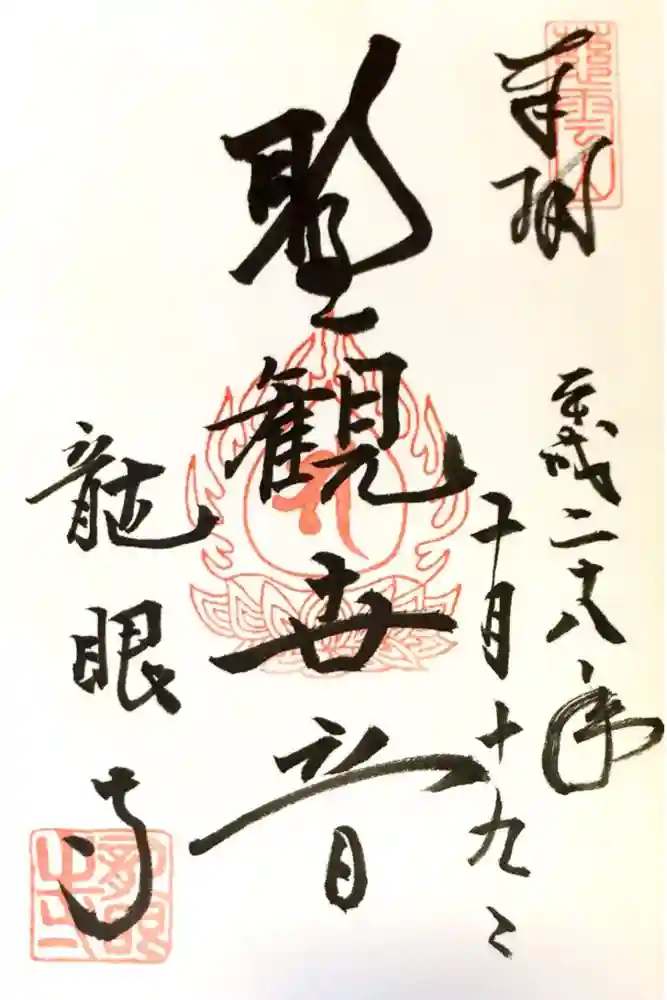 慈雲山
奉拝
平成二十八年
十月十九日
聖観世音
龍眼寺